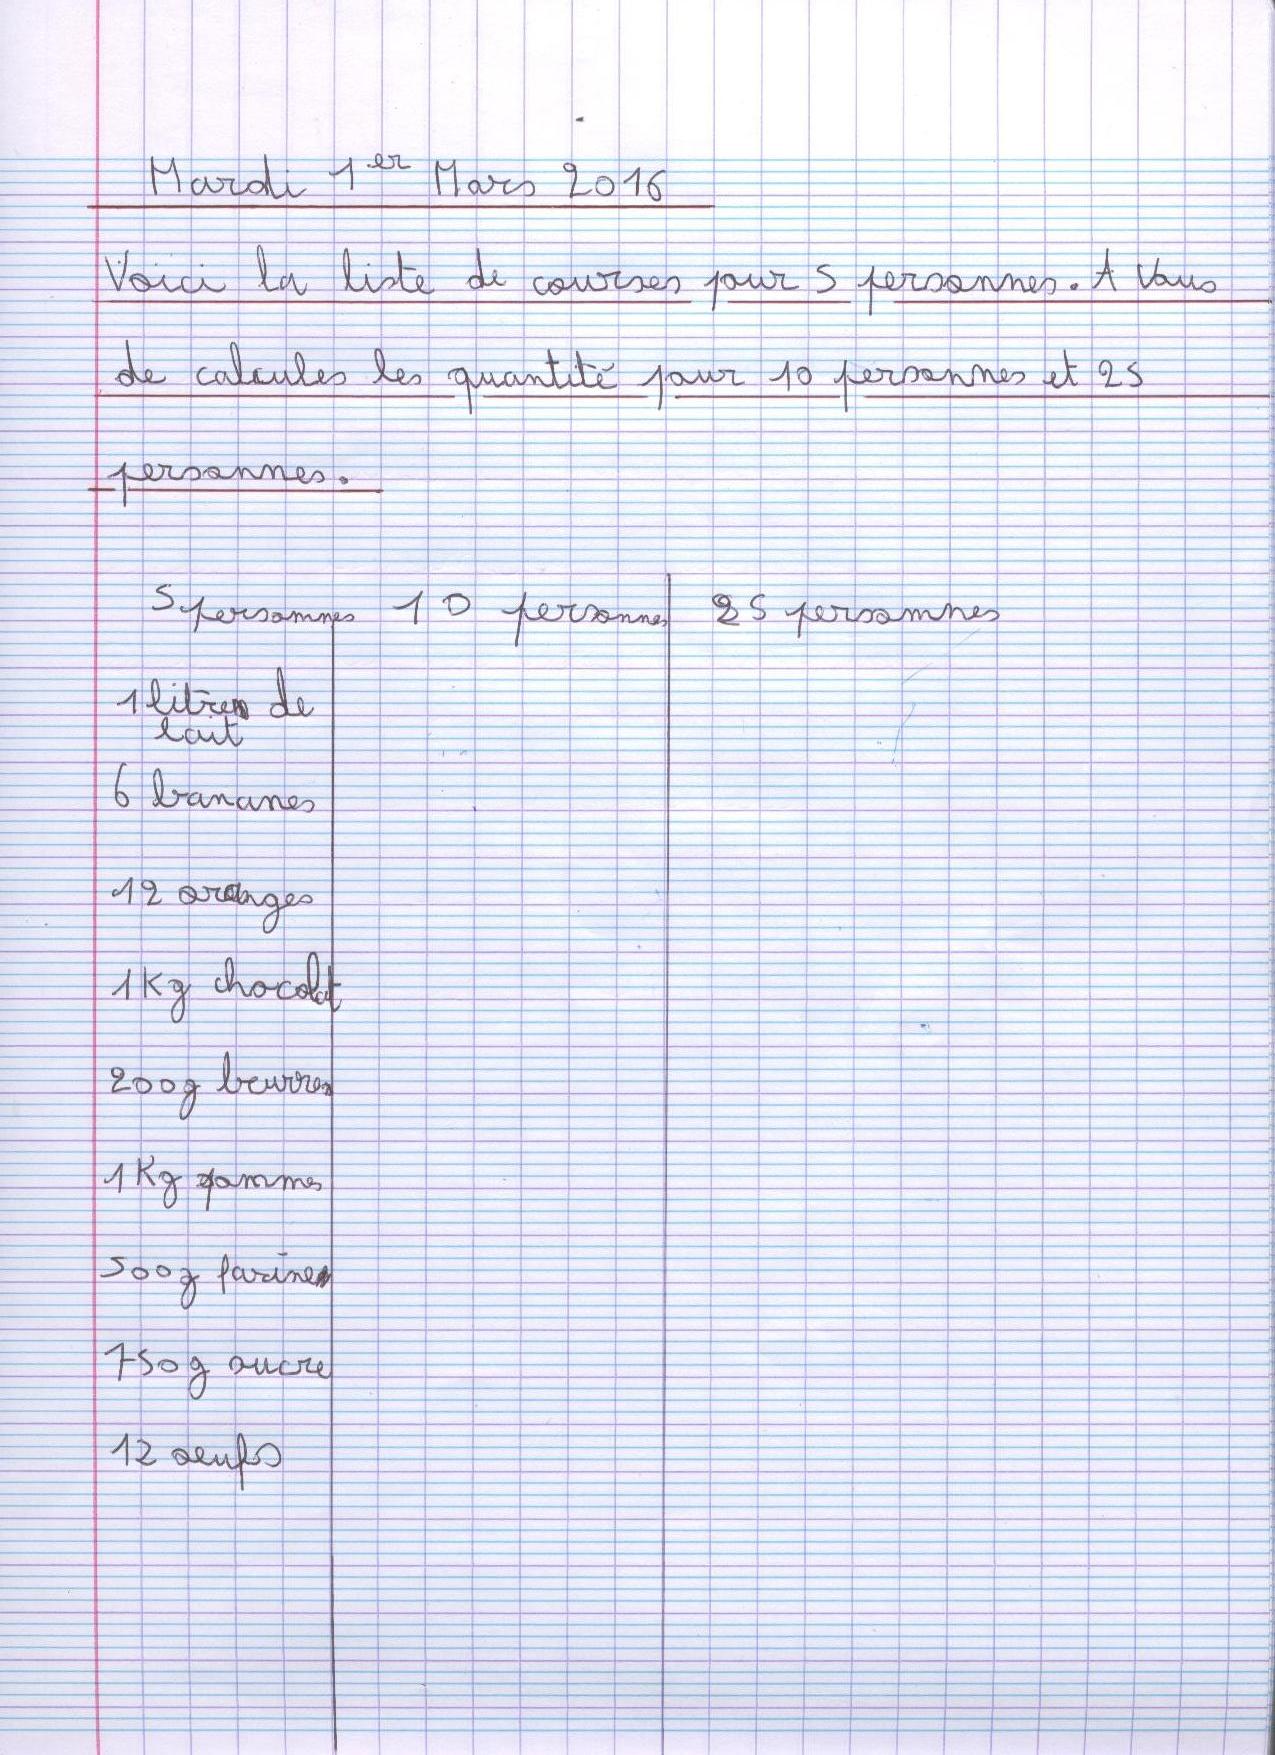 Mardi 1er Mars 2016
Voici la liste de courses pour 5 personnes. A Vous
de calcules les quantité pour 10 personnes et 25
personnes.
5 personnes 10 personnes 25 personnes
1 litres de
lait
6 bananes
12 oranges
1 Kg chocolat
200g beurres
1 Kg pommes
500g farines
750g sucre
12 oeufs